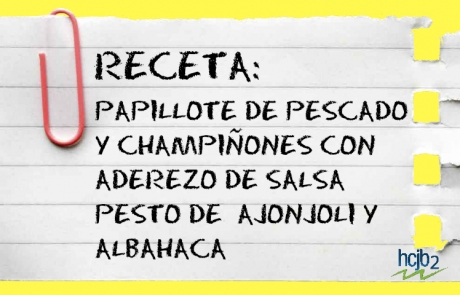 RECETA:
PAPILLOTE DE PESCADO
Y CHAMPIÑONES CON
ADEREZO DE SALSA
PESTO DE AJONJOLI Y
ALBAHACA
hcjb2